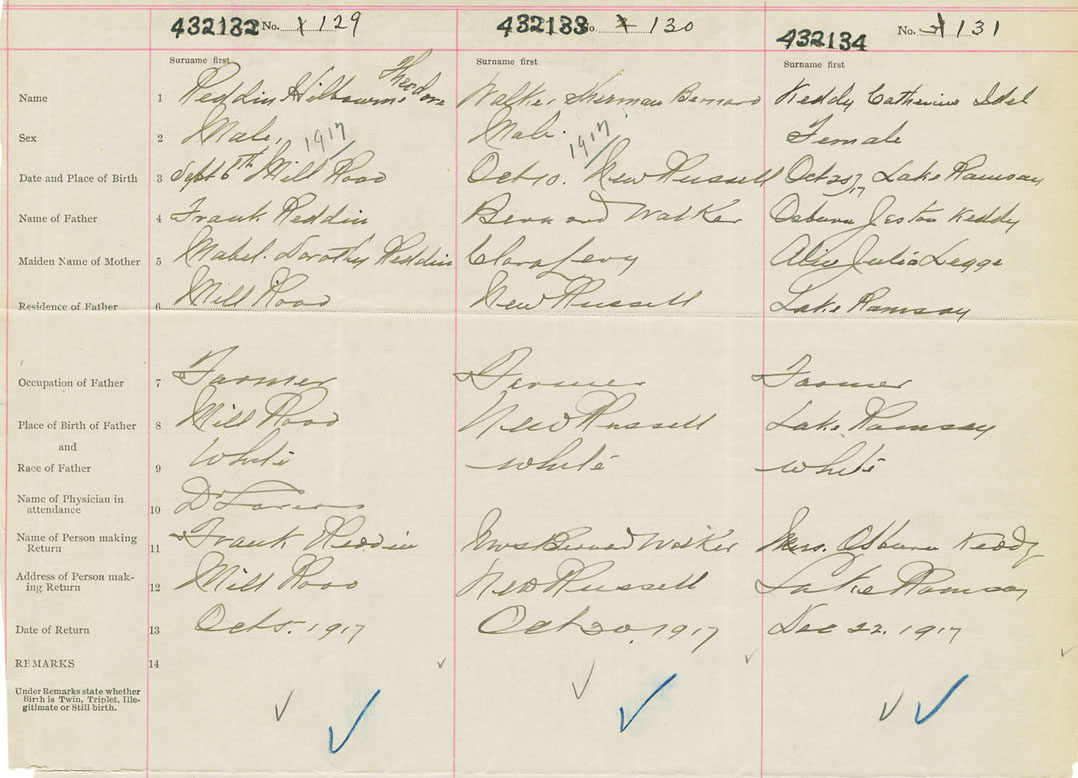 432132 No. 129 432133 No. 130 432134 No. 131
Surname first Surname first Surname first
Name 1 Reddin Hilbourne Theodore Walker Sherman Bernard Keddy Catherine Idel
Sex 2 Male, 1917 Male. 1917 Female
Date and Place of Birth 3 Sept 6th Mill Road Oct 10. New Russell Oct 25 17 Lake Ramsay
Name of Father 4 Frank Reddin Bernard Walker Osburn Keddy
Maiden Name of Mother 5 Mabel. Dorothy Reddin Clara Levy Alice Julia Legge
Residence of Father 6 Mill Road New Russell Lake Ramsay
Occupation of Father 7 Farmer Farmer Farmer
Place of Birth of Father 8 Mill Road New Russell Lake Ramsay
and
Race of Father 9 White White White
Name of Physician in
attendance 10 Dr
Name of Person making
Return 11 Frank Reddin Mrs Bernard Walker Mrs. Osburn Keddy
Address of Person mak-
ing Return 12 Mill Road New Russell Lake Ramsay
Date of Return 13 Oct 5. 1917 Oct 20, 1917 Dec 22. 1917
REMARKS 14
Under Remarks state whether
Birth is Twin, Triplet, Ille-
gitimate or Still birth.